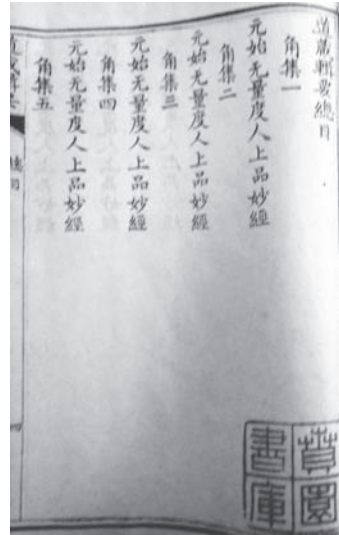 道藏輯要總目
角集一
元始无量度人上品妙經
角集二
元始无量度人上品妙經
角集三
元始无量度人上品妙經
角集四
元始无量度人上品妙經
角集五
賁園書庫